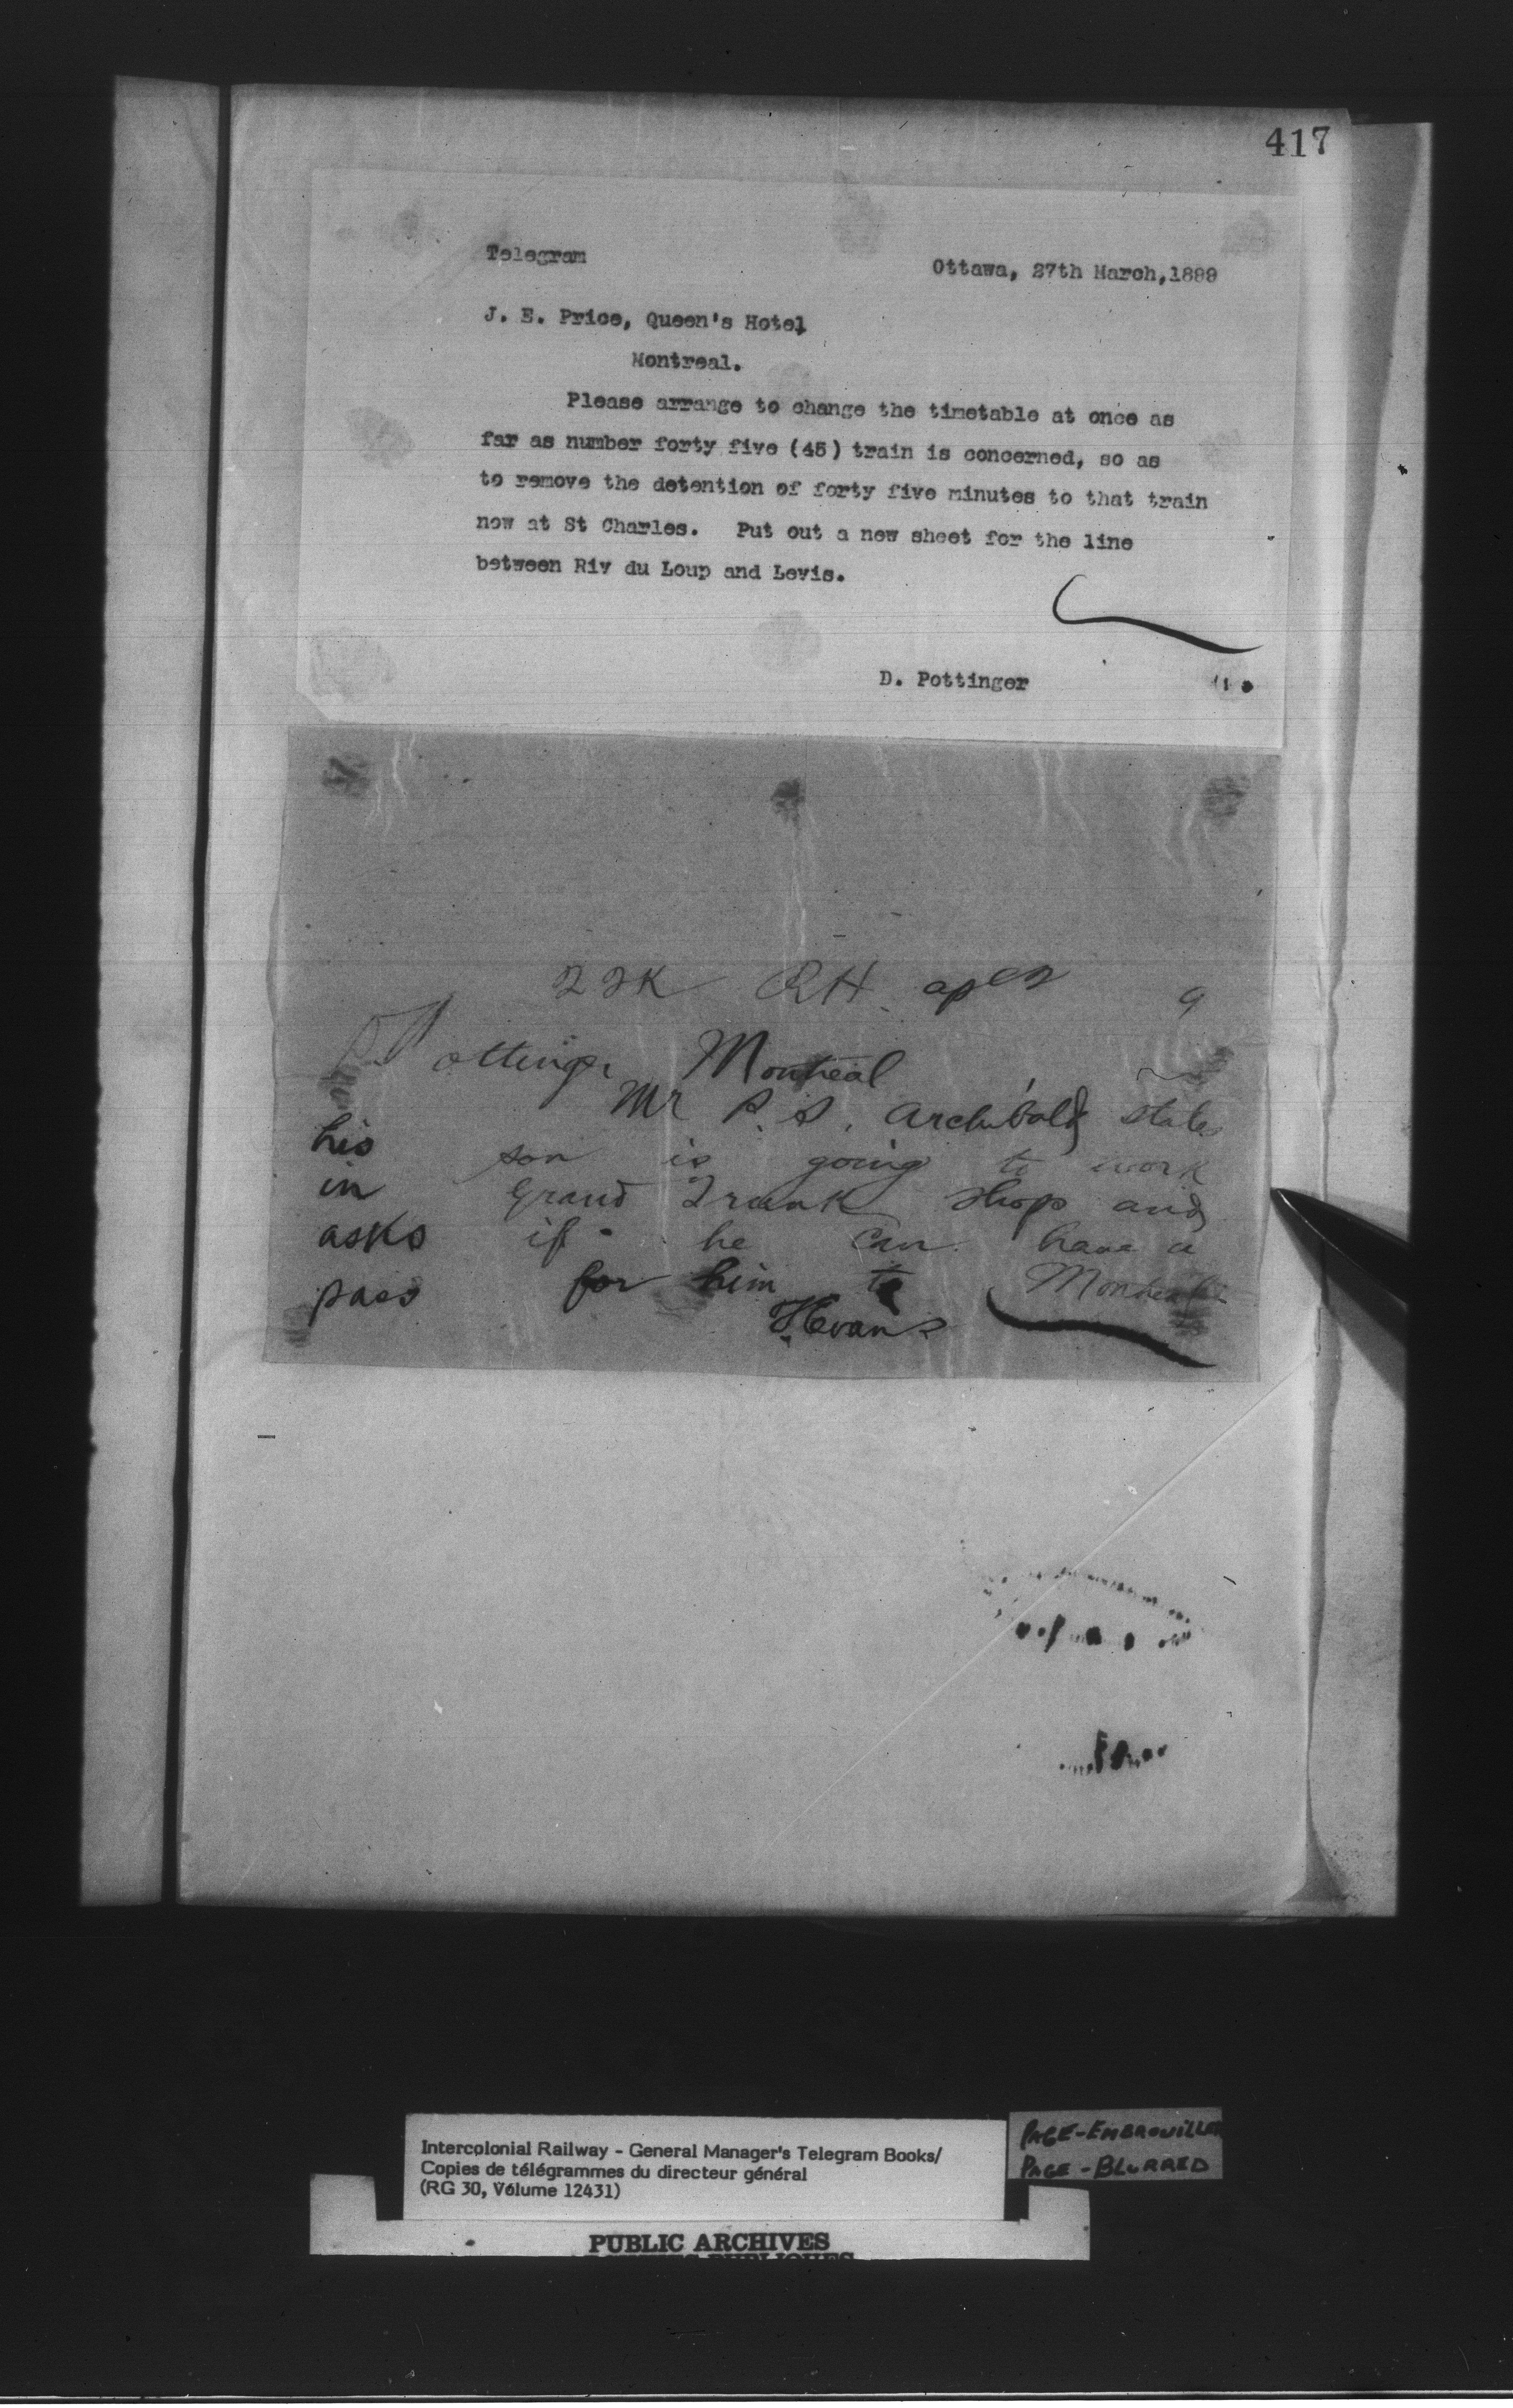 417
Telegram
Ottawa, 27th March, 1889
J. E. Price, Queen's Hotel
Montreal.
Please arrange to change the timetable at once as
far as number forty five (45) train is concerned, so as
to remove the detention of forty five minutes to that train
now at St Charles. Put out a new sheet for the line
between Riv du Loup and Levis.
D. Pottinger
22K RH 9
Montreal
Mr P. S. Archibald states
his son is going to work
in Grand Trunk shop and
asks if he can have a
pass for him to Montreal
Hevans
Intercolonial Railway - General Manager's Telegram Books/
Copies de télégrammes du directeur général
(RG 30, Volume 12431)
PAGE-EMBROUILLER
PAGE-BLURRED
PUBLIC ARCHIVES